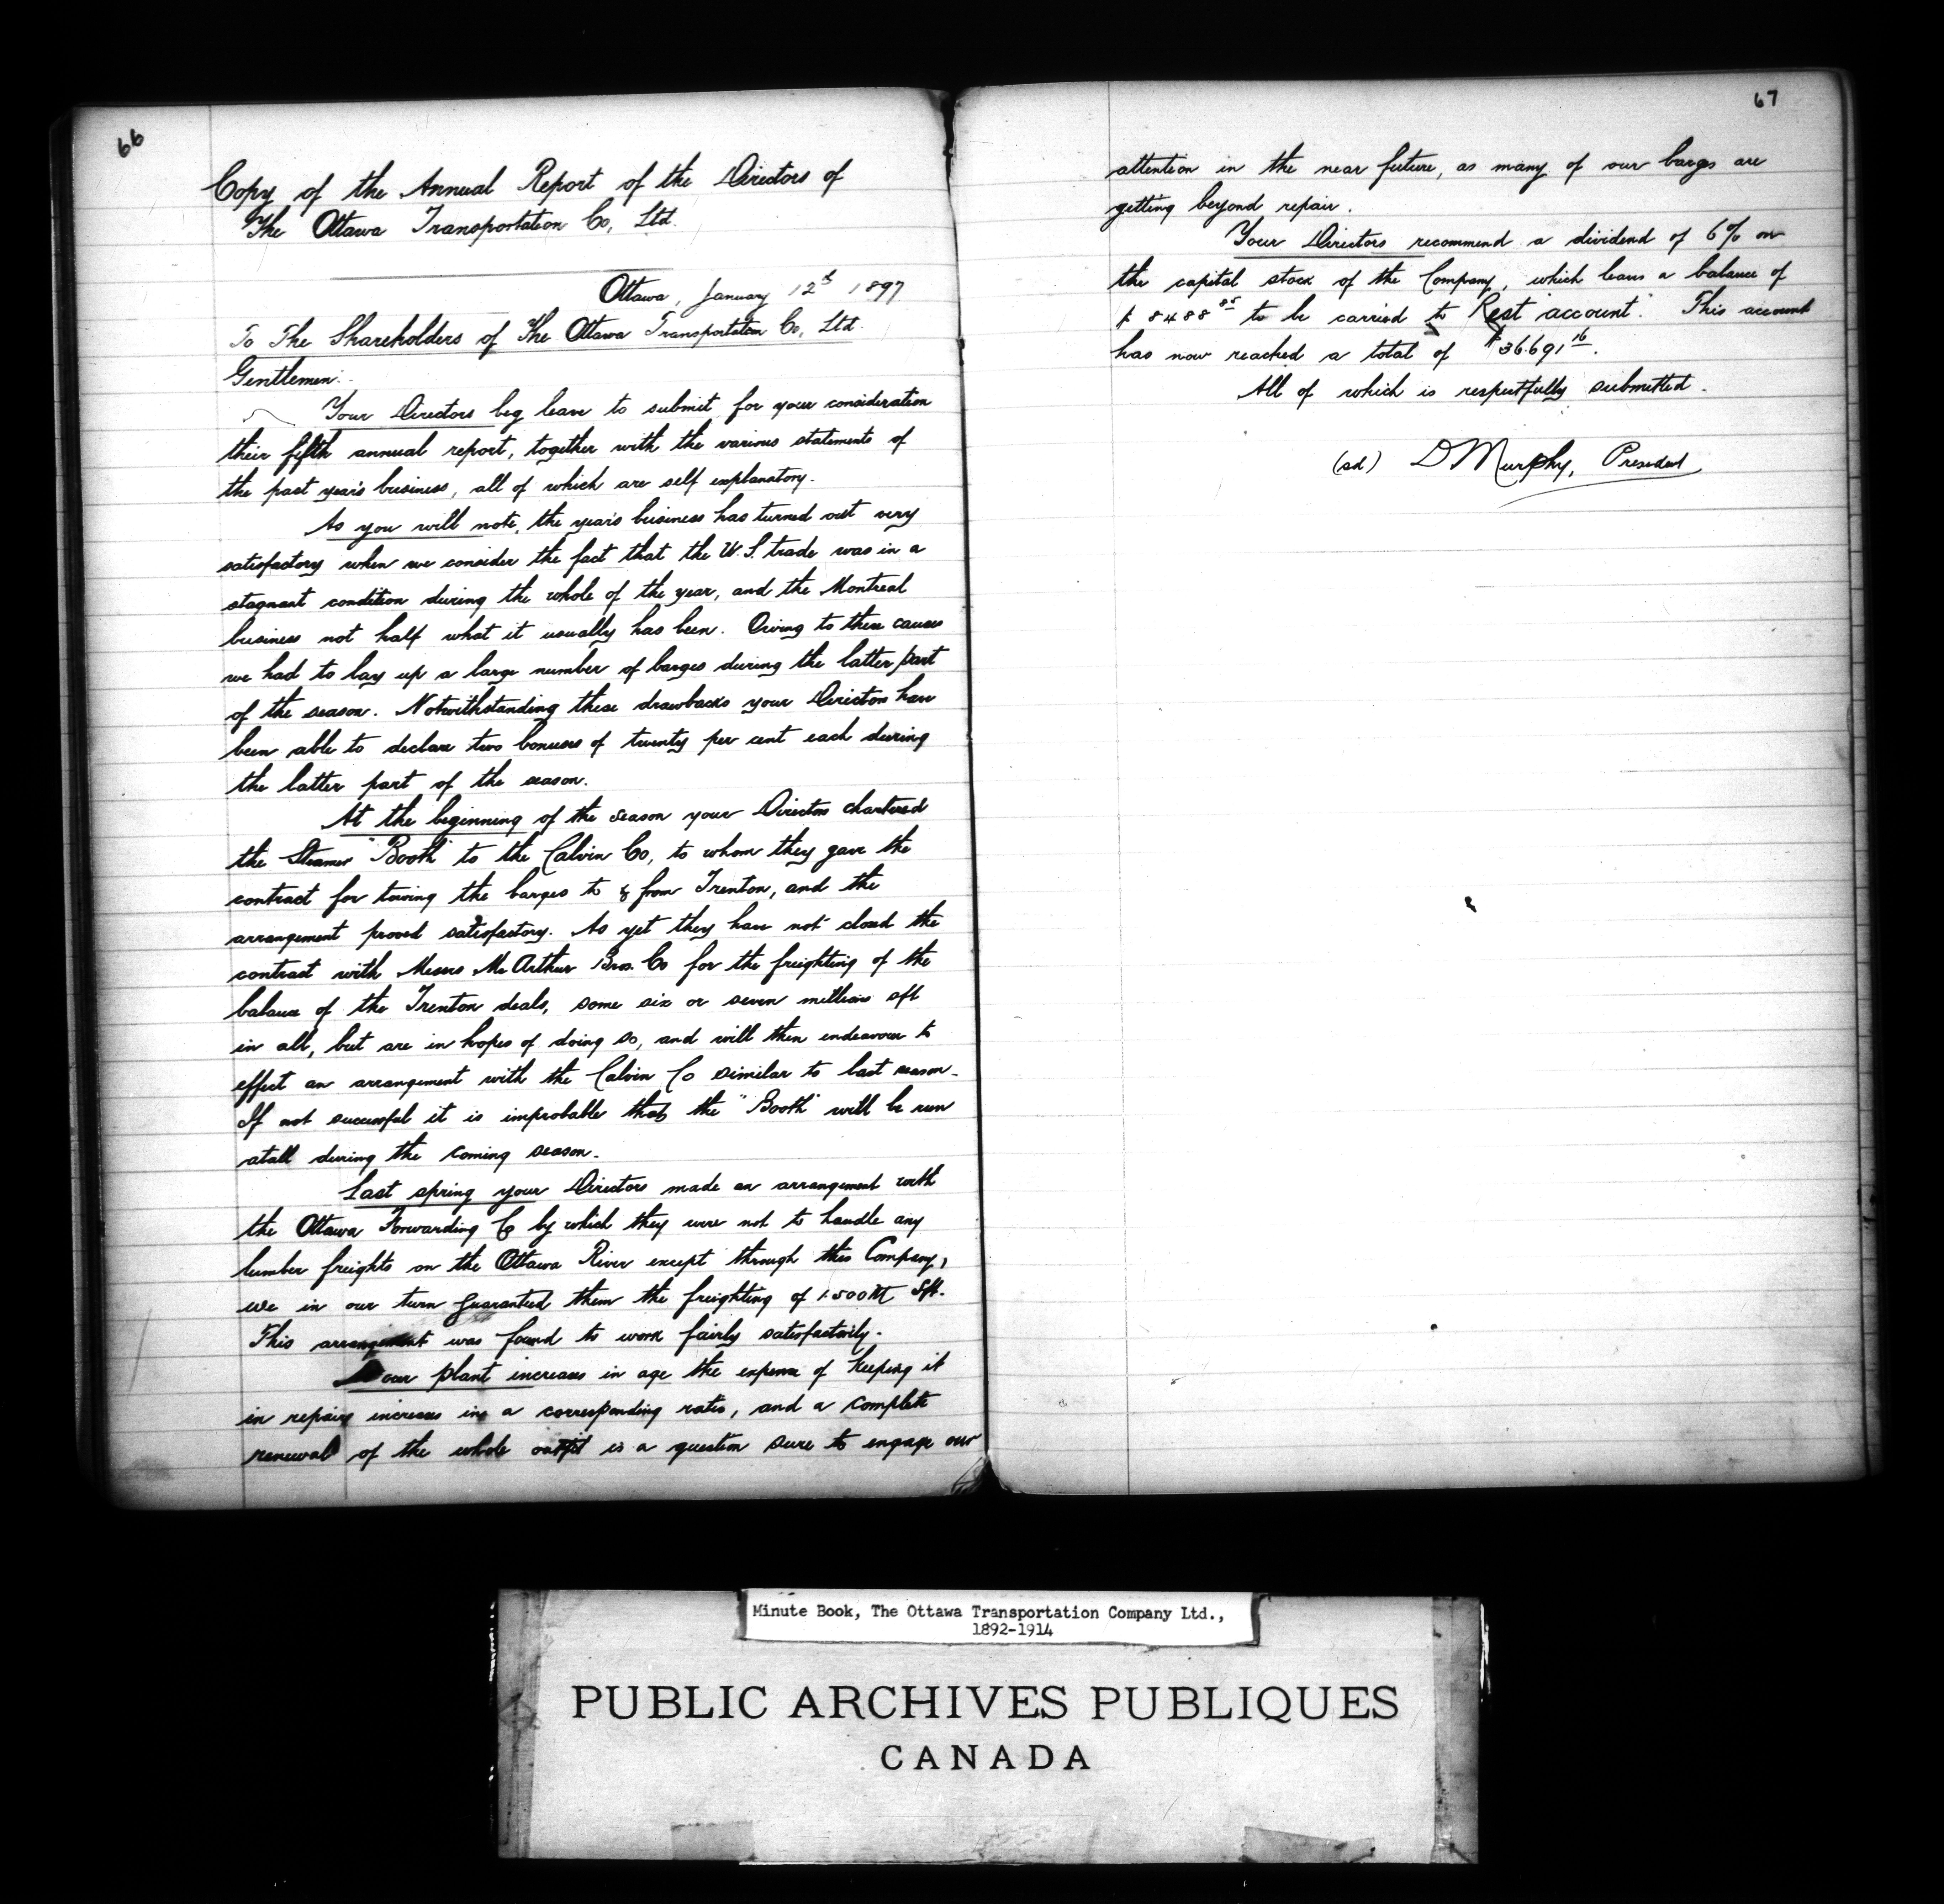 66
Copy of the Annual Report of the Directors of
The Ottawa Transportation Co, Ltd.
Ottawa, January 12th 1897
To The Shareholders of The Ottawa Transportation Co, Ltd.
Gentlemen:
Your Directors beg leave to submit for your consideration
their fifth annual report, together with the various statements of
the past year's business, all of which are self explanatory.
As you will note, the year's business has turned out very
satisfactory when we consider the fact that the U.S. trade was in a
stagnant condition during the whole of the year, and the Montreal
business not half what it usually has been. Owing to these causes
we had to lay up a large number of barges during the latter part
of the season. Notwithstanding these drawbacks your Directors have
been able to declare two bonuses of twenty per cent each during
the latter part of the season.
At the beginning of the season your Directors chartered
the Steamer "Booth" to the Calvin Co, to whom they gave the
contract for towing the barges to & from Trenton, and the
arrangement proved satisfactory. As yet they have not closed the
contract with Messrs McArthur Bros. Co for the freighting of the
balance of the Trenton deals, some six or seven millions sft
in all, but are in hopes of doing so, and will then endeavour to
effect an arrangement with the Calvin Co similar to last season.
If not successful it is improbable that the "Booth" will be run
atall during the coming season.
Last spring your Directors made an arrangement with
the Ottawa Forwarding Co by which they were not to handle any
lumber freights on the Ottawa River except through this Company,
we in our turn guaranteed them the freighting of Sft.
This arrangement was found to work fairly satisfactorily.
our plant increases in age the expense of keeping it
in repairs increases in a corresponding ratio, and a complete
renewal of the whole outfit is a question sure to engage our
67
attention in the near future, as many of our barges are
getting beyond repair.
Your Directors recommend a dividend of 6% on
the capital stock of the Company, which leaves a balance of
$8488 85 to be carried to "Rest account". This account
has now reached a total of $36.691 16.
All of which is respectfully submitted.
(sd) D Murphy, President
Minute Book, The Ottawa Transportation Company Ltd.,
1892-1914
PUBLIC ARCHIVES PUBLIQUES
CANADA